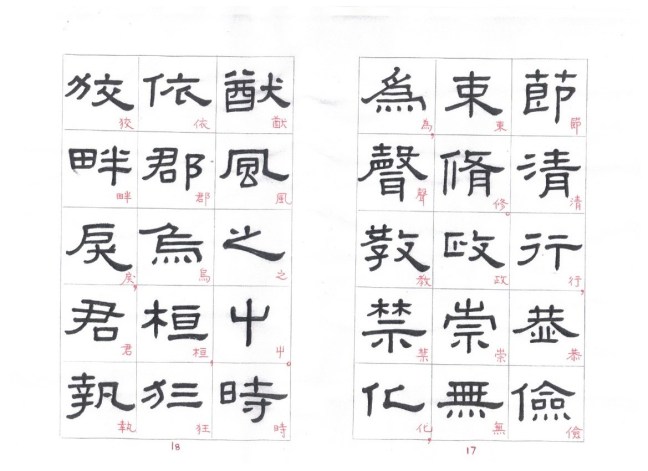 節清行恭儉
節清行，恭儉
束脩政崇無
束修。政崇無
為聲教禁化
為，聲教禁化，
17
猷風之屮時
猷風之屮。時
依郡烏桓狂
依郡烏桓，狂
狡畔戾君執
狡畔戾，君執
18